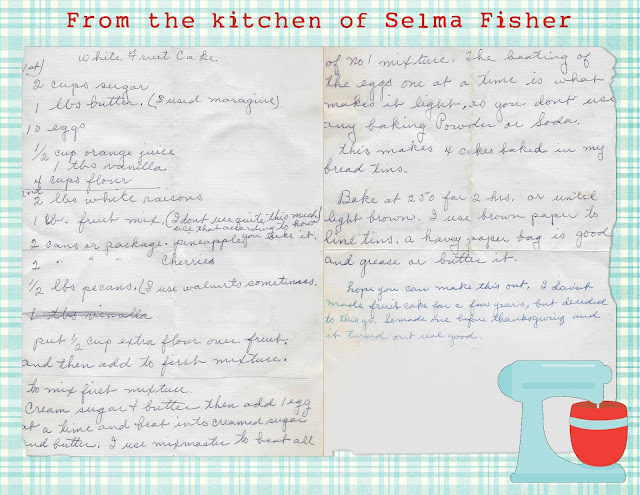 From the kitchen of Selma Fisher
White Fruit Cake
1st)
2 cups sugar
1 lbs butter. (I used maragine)
10 eggs
1/2 cup orange juice
1 tbs vanilla
4 cups flour
2nd
2 lbs white raisons
1 lb. fruit mix. (I dont use quite this much)
use that according to how
you like it.
2 cans or package. pineapple
2 " " " Cherries
1/2 lbs pecans. (I use walnuts sometimes.
1 tbs vinalla
put 1/2 cup extra flour over fruit.
and then add to first mixture.
to mix first mixture.
Cream sugar & butter then add 1 egg
at a time and beat into creamed sugar
and butter. I use mixmaster to beat all
of no 1 mixture. The beating of
the eggs one at a time is what
makes it light, so you dont use
any baking Powder or Soda.
this makes 4 cakes baked in my
bread tins.
Bake at 250 for 2 hrs. or until
light brown. I use brown paper to
line tins. a havy paper bag is good
and grease or butter it.
hope you can make this out. I
made fruit cake for a few years, but decided
to this yr. So made one before thanksgiving and
it turned out real good.